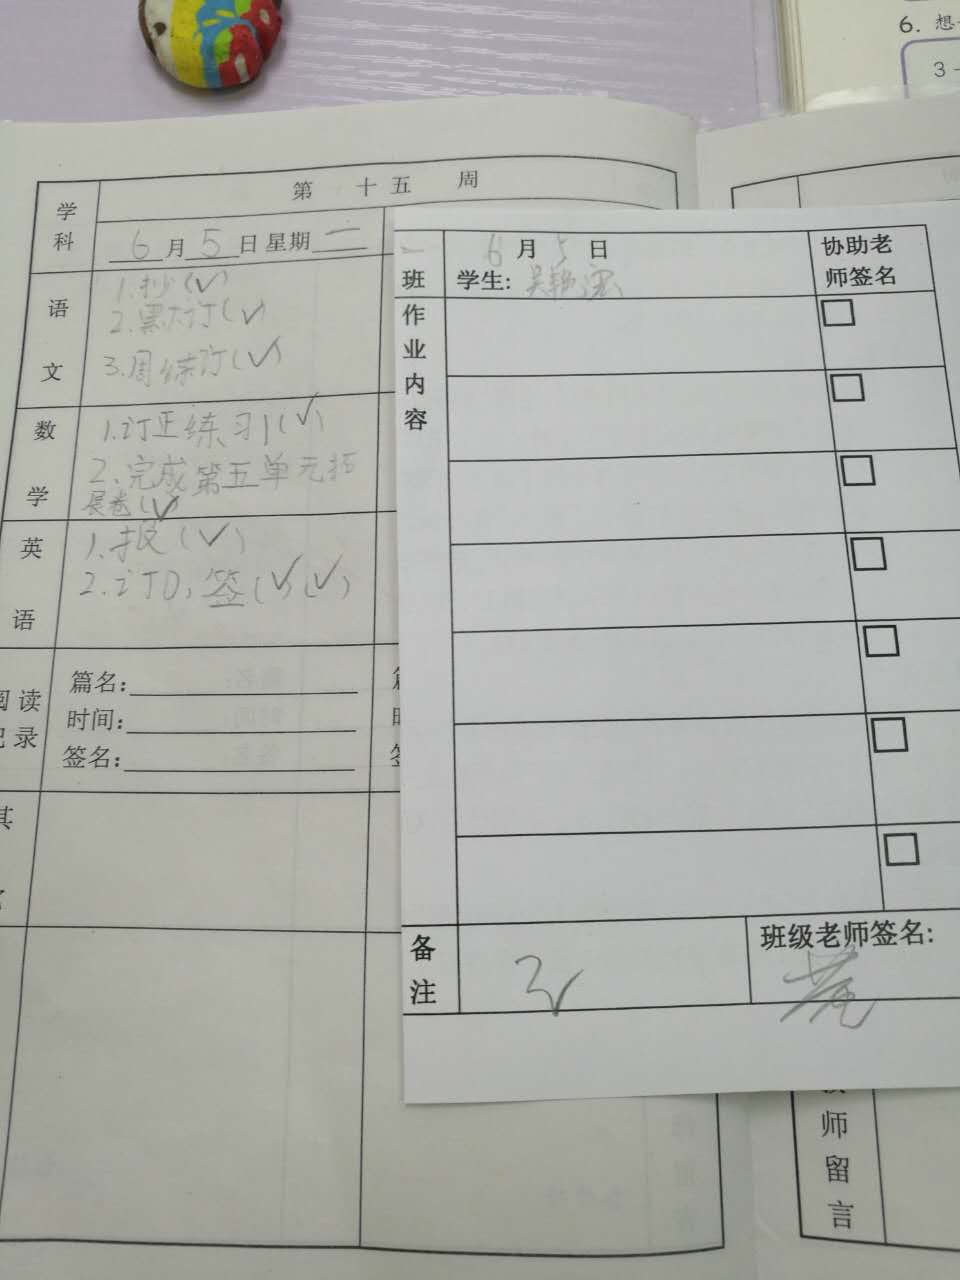 6. 想
3 -
第 十五 周
学科
6月5日 星期二
语文
1.抄(√)
2.黑大订(√)
3.周练订(√)
数学
1.订正练习1(√)
2.完成第五单元拓
展卷(√)
英语
1.报(√)
2.订D,签(√)(√)
阅读
记录
篇名:
时间:
签名:
其
一班
6月5日
学生:
协助老
师签名
作业内容
备注
班级老师签名:
师留言